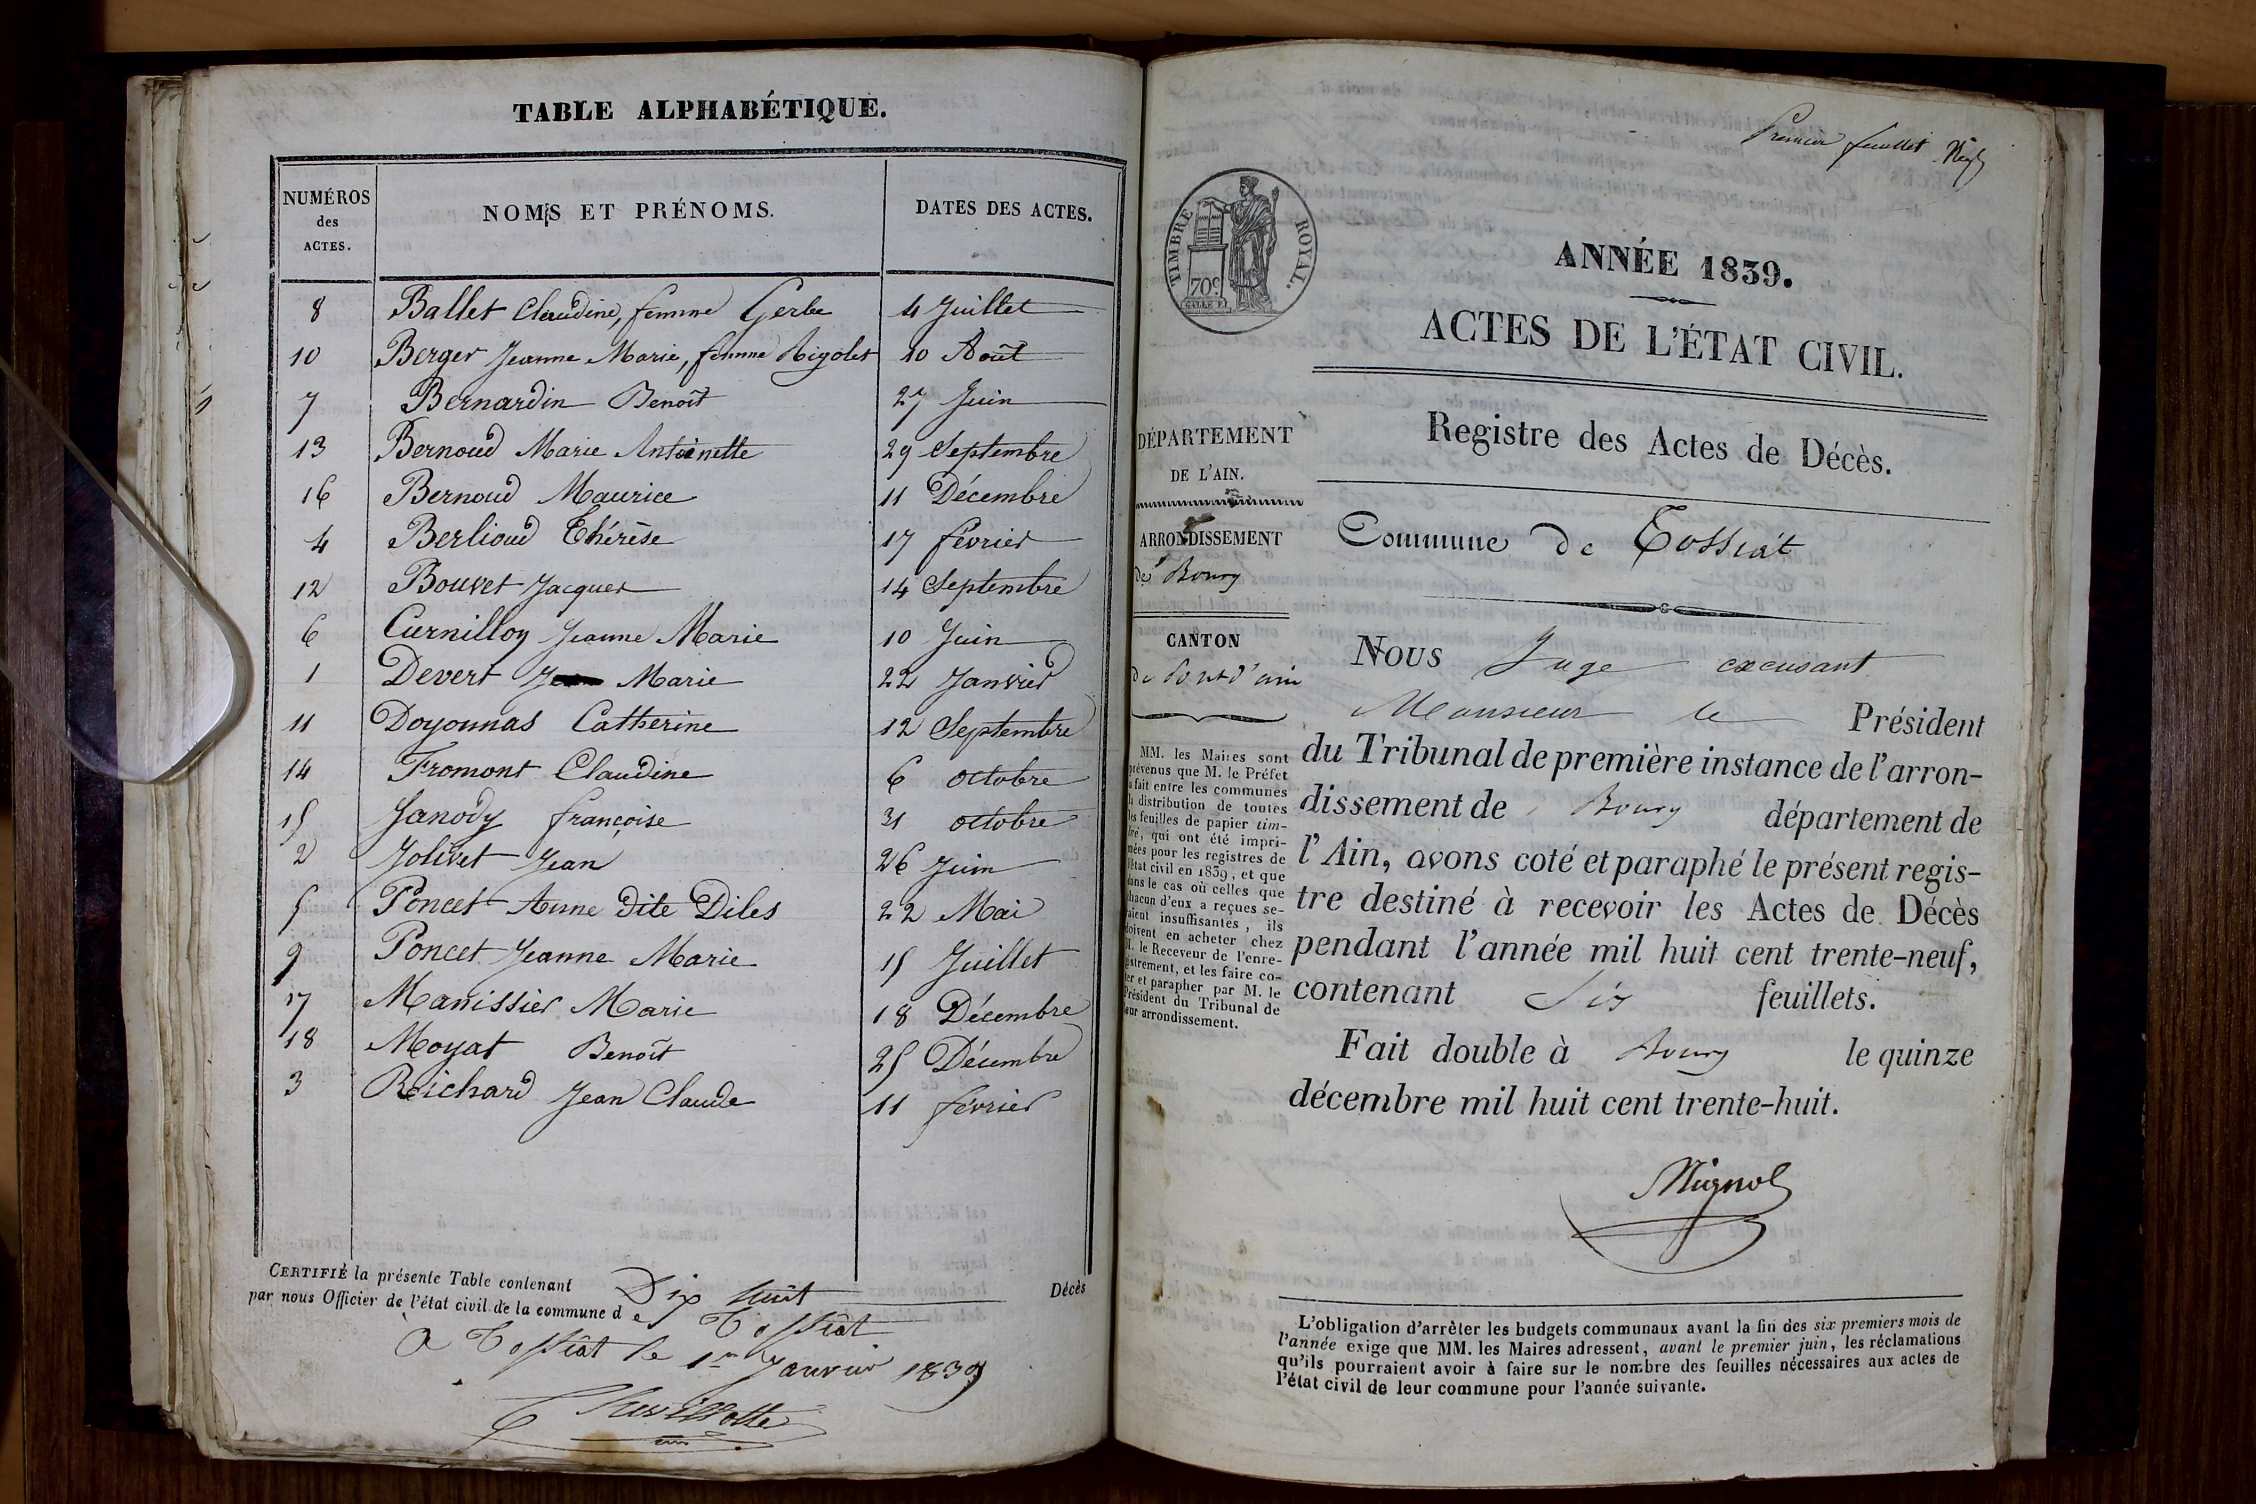 TABLE ALPHABÉTIQUE.
NUMÉROS des ACTES. NOMS ET PRÉNOMS. DATES DES ACTES.
8 Ballet Claudine, femme Gerbe 4 Juillet
10 Berger Jeanne Marie, femme Rigolet 10 Août
7 Bernardin Benoît 27 Juin
13 Bernoud Marie Antoinette 29 Septembre
16 Bernoud Maurice 11 Décembre
4 Berlioud Thérèse 17 février
12 Bouvet Jacques 14 Septembre
6 Curnilloy Jeanne Marie 10 Juin
1 Devert Marie 22 Janvier
11 Doyonnas Catherine 12 Septembre
14 Fromont Claudine 6 octobre
15 Janody françoise 31 octobre
2 Jolivet Jean 26 Juin
5 Poncet Anne dite Diles 22 Mai
9 Poncet Jeanne Marie 15 Juillet
17 Manissier Marie 18 Décembre
18 Moyat Benoît 25 Décembre
3 Reichard Jean Claude 11 février
CERTIFIÉ la présente Table contenant Dix huit Décès
par nous Officier de l'état civil de la commune de Tossiat
A Tossiat le 1er Janvier 1839
Premier feuillet
TIMBRE ROYAL.
70c
ANNÉE 1839.
ACTES DE L'ÉTAT CIVIL.
DÉPARTEMENT
DE L'AIN.
ARRONDISSEMENT
de Bourg
CANTON
de Pont d'ain
MM. les Maires sont
prévenus que M. le Préfet
a fait entre les communes
la distribution de toutes
les feuilles de papier tim-
bré, qui ont été impri-
mées pour les registres de
l'état civil en 1839, et que
dans le cas où celles que
chacun d'eux a reçues se-
raient insuffisantes, ils
doivent en acheter chez
M. le Receveur de l'enre-
gistrement, et les faire co-
ter et parapher par M. le
Président du Tribunal de
leur arrondissement.
Registre des Actes de Décès.
Commune de Tossiat
Nous Juge excusant
Monsieur le Président
du Tribunal de première instance de l'arron-
dissement de Bourg département de
l'Ain, avons coté et paraphé le présent regis-
tre destiné à recevoir les Actes de Décès
pendant l'année mil huit cent trente-neuf,
contenant Six feuillets.
Fait double à Bourg le quinze
décembre mil huit cent trente-huit.
L'obligation d'arrêter les budgets communaux avant la fin des six premiers mois de
l'année exige que MM. les Maires adressent, avant le premier juin, les réclamations
qu'ils pourraient avoir à faire sur le nombre des feuilles nécessaires aux actes de
l'état civil de leur commune pour l'année suivante.